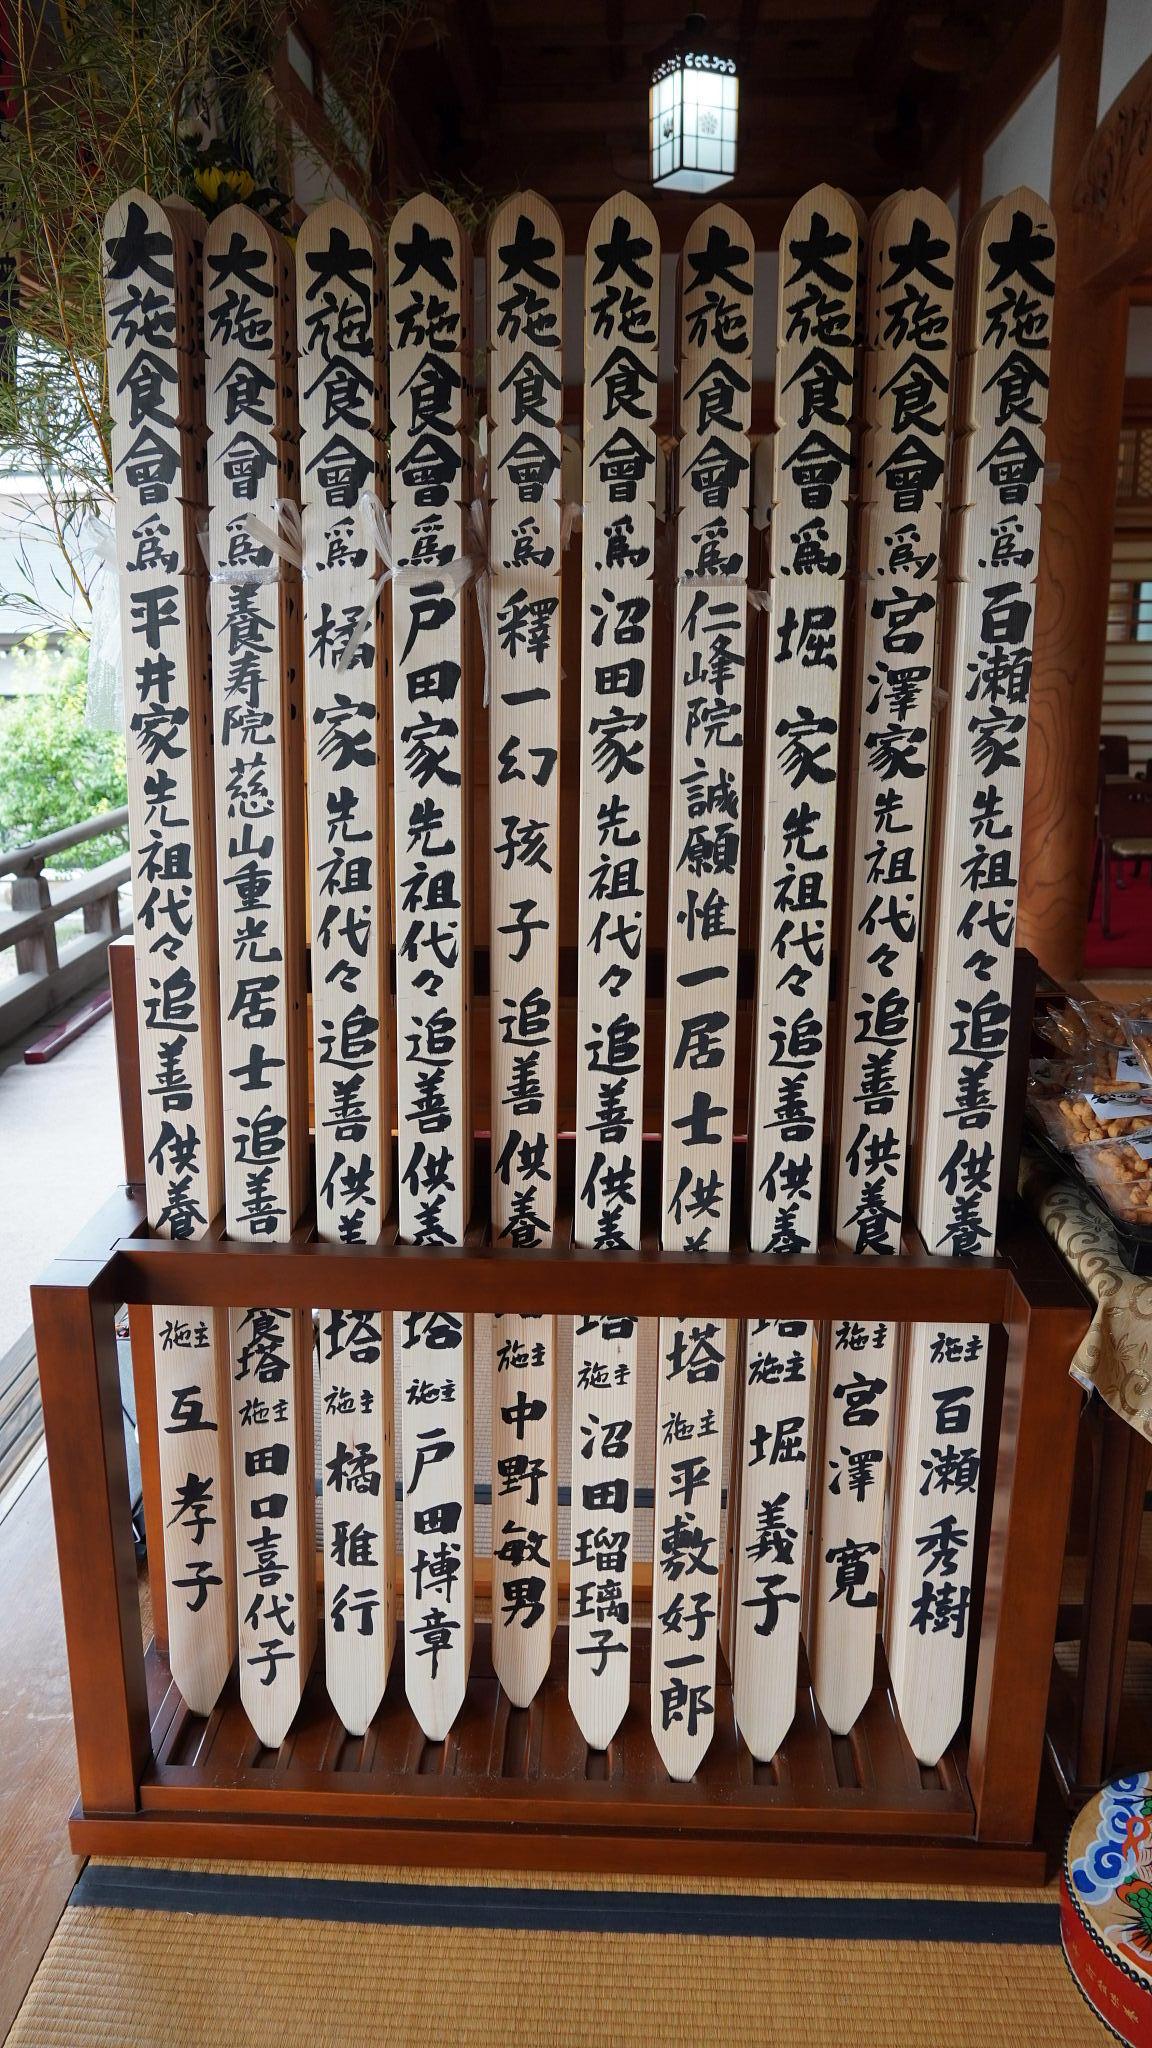 大施食會爲百瀬家先祖代々追善供養 施主 百瀬秀樹
大施食會爲宮澤家先祖代々追善供養 施主 宮澤寛
大施食會爲堀家先祖代々追善供養塔 施主 堀義子
大施食會爲仁峰院誠願惟一居士供養塔 施主 平敷好一郎
大施食會爲沼田家先祖代々追善供養塔 施主 沼田瑠璃子
大施食會爲釋一幻孩子追善供養塔 施主 中野敏男
大施食會爲戸田家先祖代々追善供養塔 施主 戸田博章
大施食會爲橘家先祖代々追善供養塔 施主 橘雅行
大施食會爲養寿院慈山重光居士追善養塔 施主 田口喜代子
大施食會爲平井家先祖代々追善供養 施主 互孝子